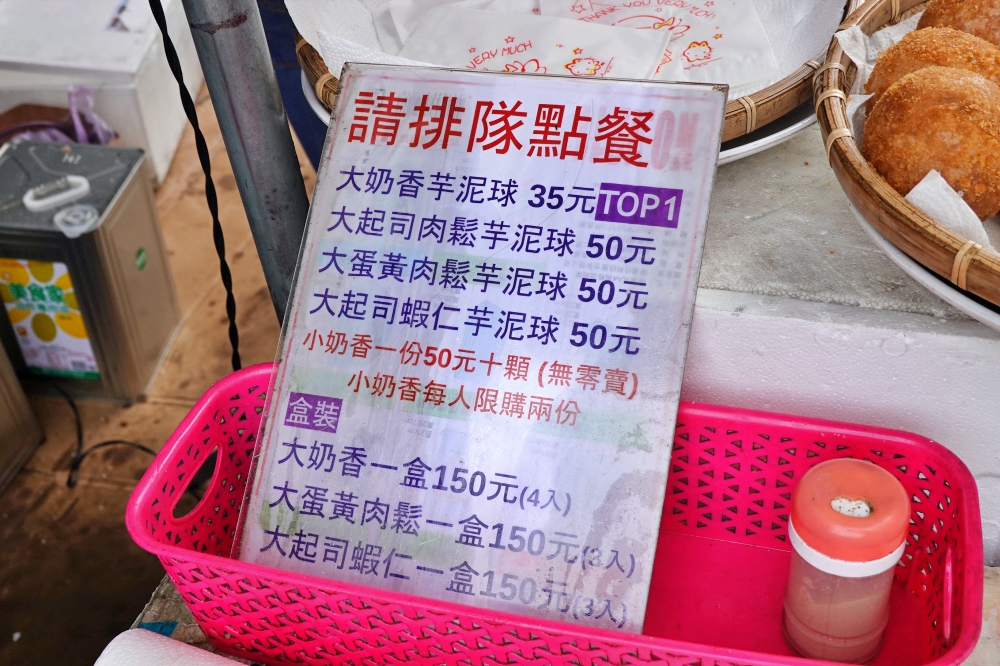 VERY MUCH
THANK YOU VERY MUCH
請排隊點餐
大奶香芋泥球 35元 TOP1
大起司肉鬆芋泥球 50元
大蛋黃肉鬆芋泥球 50元
大起司蝦仁芋泥球 50元
小奶香一份50元十顆 (無零賣)
小奶香每人限購兩份
盒裝
大奶香一盒150元(4入)
大蛋黃肉鬆一盒150元(3入)
大起司蝦仁一盒150元(3入)
美食家